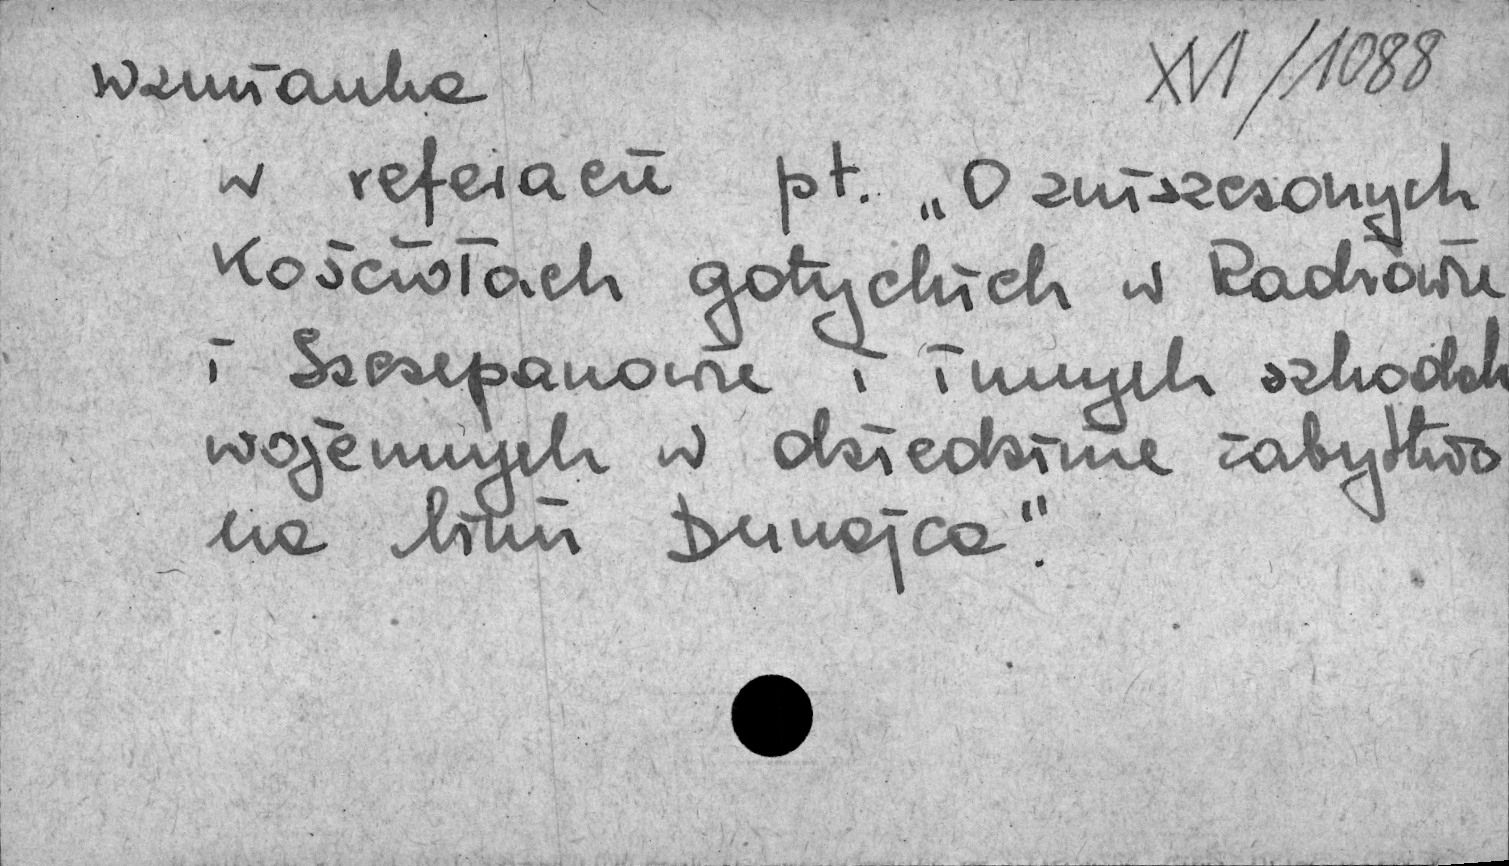 XVI/1088
wzmianka
w referacie pt. „O zniszczonych
Kościołach gotyckich w Radłowie
i Szczepanowie i innych szkodach
wojennych w dziedzinie zabytków
na linii Dunajca".